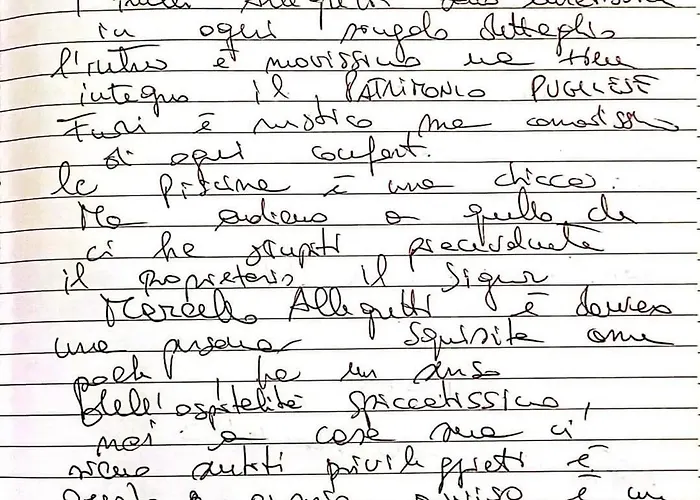 in ogni singolo dettaglio
l'interno è nuovissimo ma tiene
integro il PATRIMONIO PUGLIESE
Fuori è rustico ma comodissimo
di ogni confort.
la piscina è una chicca.
Ma andiamo a quello che
ci ha stupiti piacevolmente
il proprietario il Signor
Marcello Allegretti è davvero
una persona squisita come
poche, ha un senso
dell'ospitalità spiccatissimo,
noi a casa sua ci
siamo sentiti privilegiati è